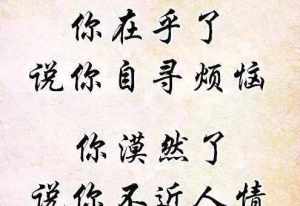 你在乎了
说你自寻烦恼
你漠然了
说你不近人情